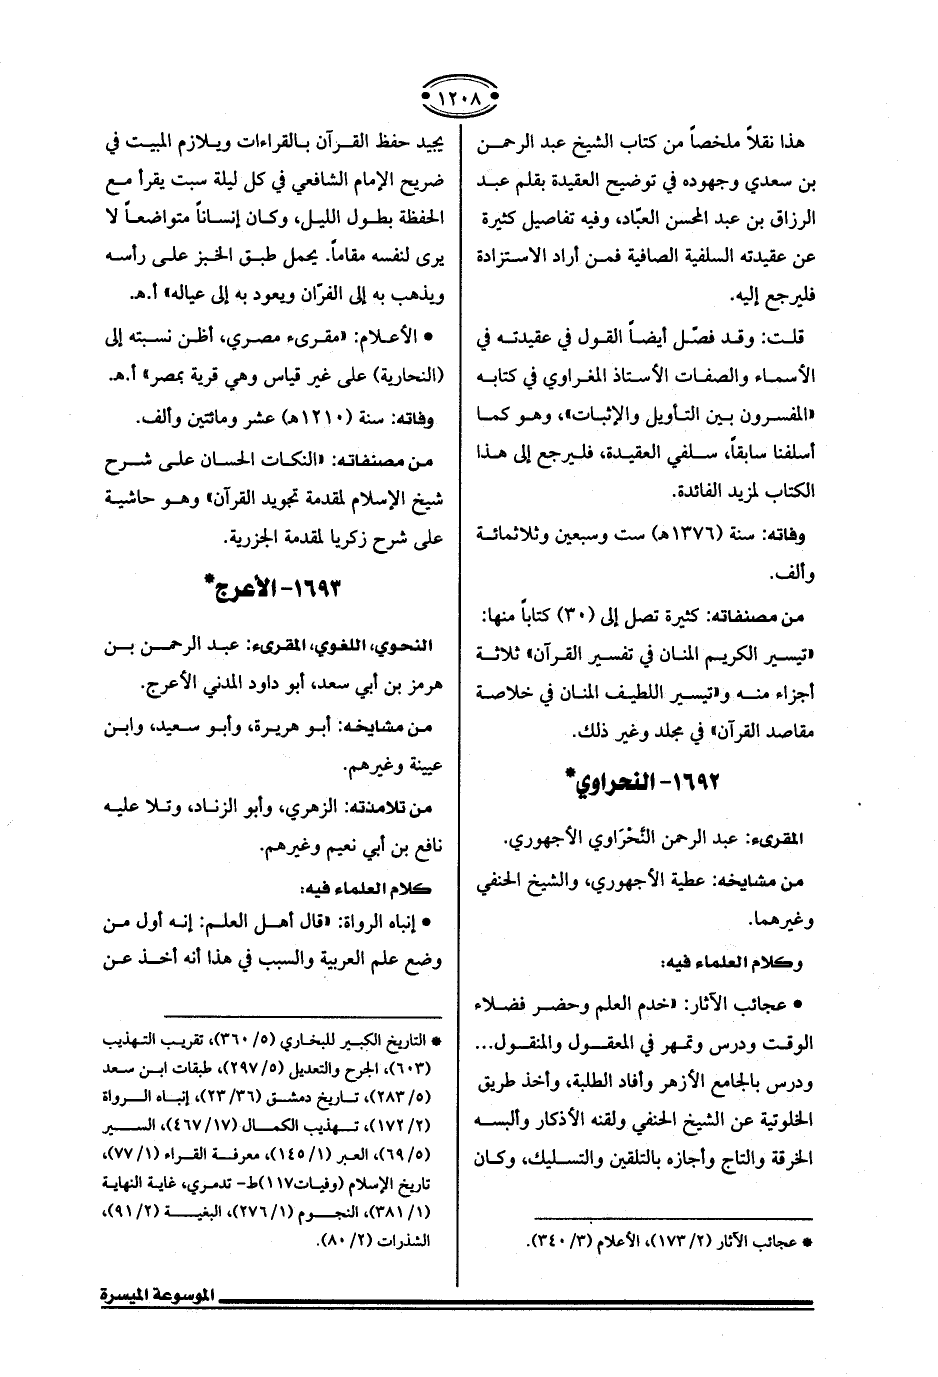 ١٢٠٨
هذا نقلاً ملخصاً من كتاب الشيخ عبد الرحمن
بن سعدي وجهوده في توضيح العقيدة بقلم عبد
الرزاق بن عبد المحسن العبّاد، وفيه تفاصيل كثيرة
عن عقيدته السلفية الصافية فمن أراد الاستزادة
فليرجع إليه.
قلت: وقد فصّل أيضاً القول في عقيدته في
الأسماء والصفات الأستاذ المغراوي في كتابه
«المفسرون بين التأويل والإثبات»، وهو كما
أسلفنا سابقاً، سلفي العقيدة، فليرجع إلى هذا
الكتاب لمزيد الفائدة.
وفاته: سنة (١٣٧٦هـ) ست وسبعين وثلاثمائة
وألف.
من مصنفاته: كثيرة تصل إلى (٣٠) كتاباً منها:
«تيسير الكريم المنان في تفسير القرآن» ثلاثة
أجزاء منه و«تيسير اللطيف المنان في خلاصة
مقاصد القرآن» في مجلد وغير ذلك.
١٦٩٢- النحراوي*
المقرىء: عبد الرحمن النَّحْرَاوي الأجهوري.
من مشايخه: عطية الأجهوري، والشيخ الحنفي
وغيرهما.
وكلام العلماء فيه:
• عجائب الآثار: «خدم العلم وحضر فضلاء
الوقت ودرس وتمهر في المعقول والمنقول...
ودرس بالجامع الأزهر وأفاد الطلبة، وأخذ طريق
الخلوتية عن الشيخ الحنفي ولقنه الأذكار وألبسه
الخرقة والتاج وأجازه بالتلقين والتسليك، وكان
* عجائب الآثار (٢/ ١٧٣)، الأعلام (٣/ ٣٤٠).
يجيد حفظ القرآن بالقراءات ويلازم المبيت في
ضريح الإمام الشافعي في كل ليلة سبت يقرأ مع
الحفظة بطول الليل، وكان إنساناً متواضعاً لا
يرى لنفسه مقاماً. يحمل طبق الخبز على رأسه
ويذهب به إلى الفرّان ويعود به إلى عياله» أ.هـ.
• الأعلام: «مقرىء مصري، أظن نسبته إلى
(النحارية) على غير قياس وهي قرية بمصر» أ.هـ.
وفاته: سنة (١٢١٠هـ) عشر ومائتين وألف.
من مصنفاته: «النكات الحسان على شرح
شيخ الإسلام لمقدمة تجويد القرآن» وهو حاشية
على شرح زكريا لمقدمة الجزرية.
١٦٩٣- الأعرج*
النحوي، اللغوي، المقرىء: عبد الرحمن بن
هرمز بن أبي سعد، أبو داود المدني الأعرج.
من مشايخه: أبو هريرة، وأبو سعيد، وابن
عيينة وغيرهم.
من تلامذته: الزهري، وأبو الزناد، وتلا عليه
نافع بن أبي نعيم وغيرهم.
كلام العلماء فيه:
• إنباه الرواة: «قال أهل العلم: إنه أول من
وضع علم العربية والسبب في هذا أنه أخذ عن
* التاريخ الكبير للبخاري (٥/ ٣٦٠)، تقريب التهذيب
(٦٠٣)، الجرح والتعديل (٥/ ٢٩٧)، طبقات ابن سعد
(٥/ ٢٨٣)، تاريخ دمشق (٣٦/ ٢٣)، إنباه الرواة
(٢/ ١٧٢)، تهذيب الكمال (١٧/ ٤٦٧)، السير
(٥/ ٦٩)، العبر (١/ ١٤٥)، معرفة القراء (١/ ٧٧)،
تاريخ الإسلام (وفيات١١٧)ط- تدمري، غاية النهاية
(١/ ٣٨١)، النجوم (١/ ٢٧٦)، البغية (٢/ ٩١)،
الشذرات (٢/ ٨٠).
الموسوعة الميسرة